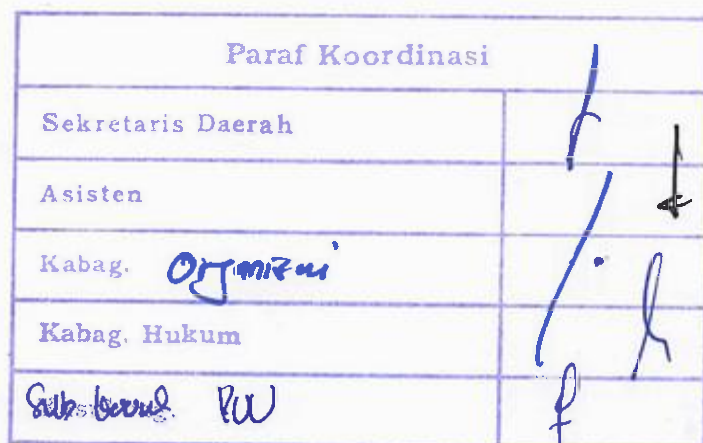 Paraf Koordinasi
Sekretaris Daerah
Asisten
Kabag. Organisasi
Kabag. Hukum